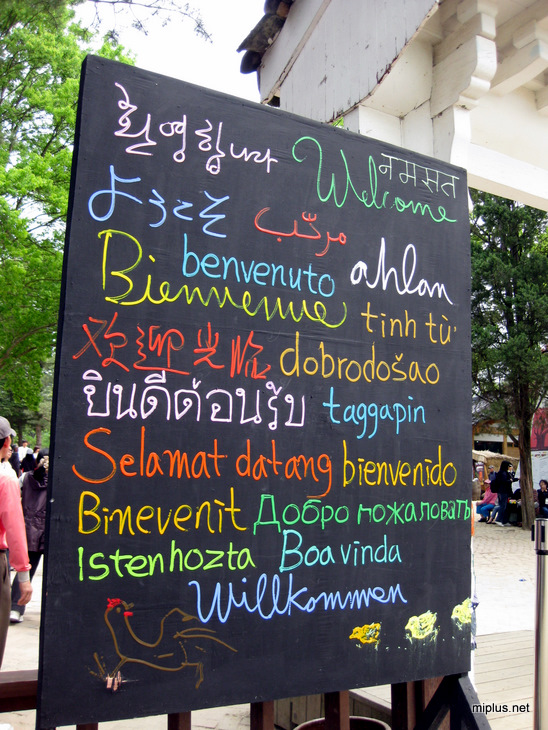 환영합니다
Welcome
नमसत
ようこそ
benvenuto
ahlan
Bienvenue
tính từ
欢迎光临
dobrodošao
ยินดีต้อนรับ
taggapin
Selamat datang
bienvenido
Binevenit
Добро пожаловать
Istenhozta
Boa vinda
Willkommen
miplus.net